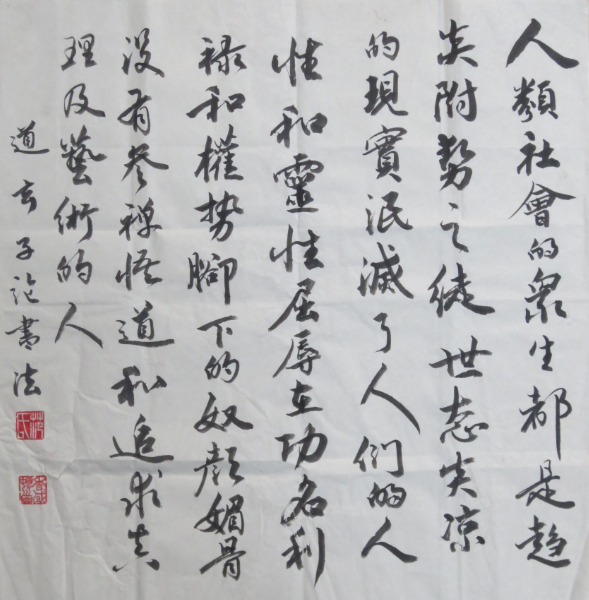 人類社會的衆生都是趋
炎附勢之徒世态炎凉
的現實泯滅了人们的人
性和靈性屈辱在功名利
禄和權势腳下的奴颜媚骨
没有参禅悟道和追求真
理及藝術的人
道玄子论書法